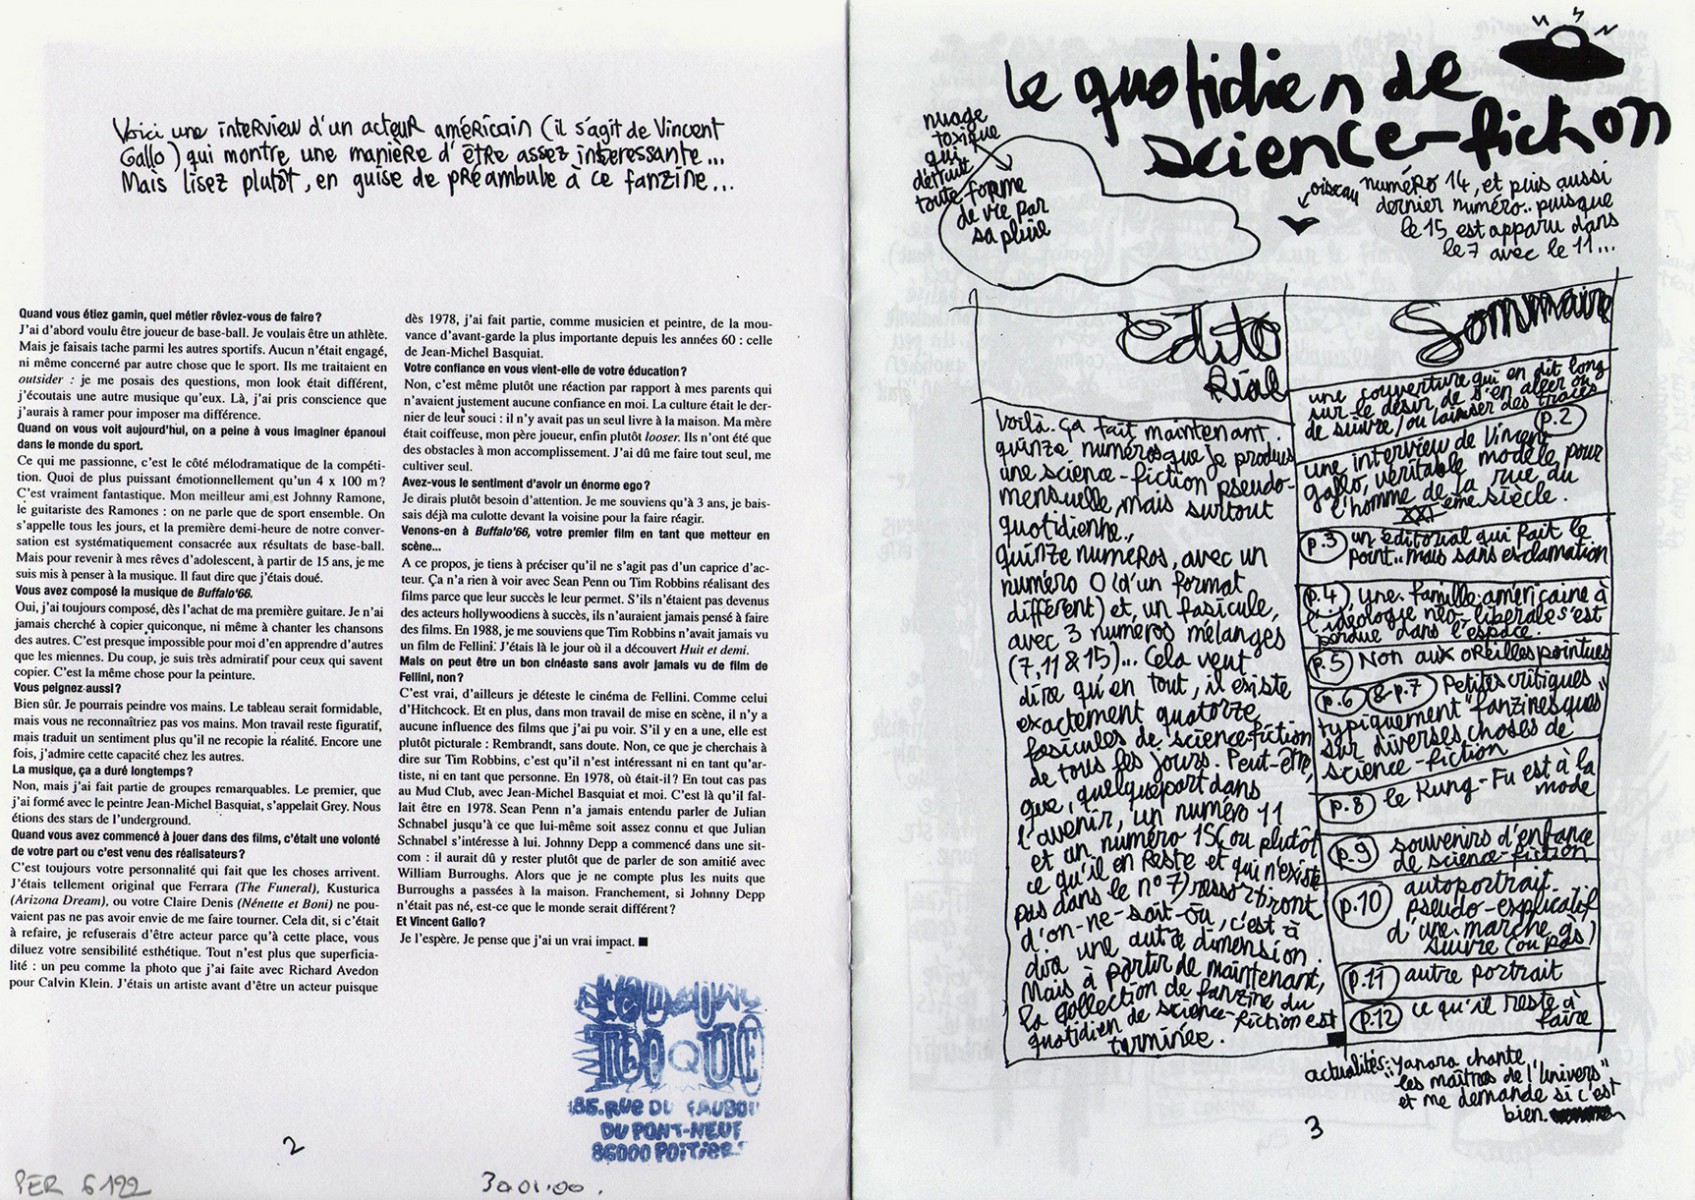 Voici une interview d'un acteur américain (il s'agit de Vincent
Gallo) qui montre une manière d'être assez interessante...
Mais lisez plutôt, en guise de préambule à ce fanzine...
Quand vous étiez gamin, quel métier rêviez-vous de faire ?
J'ai d'abord voulu être joueur de base-ball. Je voulais être un athlète.
Mais je faisais tache parmi les autres sportifs. Aucun n'était engagé,
ni même concerné par autre chose que le sport. Ils me traitaient en
outsider : je me posais des questions, mon look était différent,
j'écoutais une autre musique qu'eux. Là, j'ai pris conscience que
j'aurais à ramer pour imposer ma différence.
Quand on vous voit aujourd'hui, on a peine à vous imaginer épanoui
dans le monde du sport.
Ce qui me passionne, c'est le côté mélodramatique de la compéti-
tion. Quoi de plus puissant émotionnellement qu'un 4 x 100 m ?
C'est vraiment fantastique. Mon meilleur ami est Johnny Ramone,
le guitariste des Ramones : on ne parle que de sport ensemble. On
s'appelle tous les jours, et la première demi-heure de notre conver-
sation est systématiquement consacrée aux résultats de base-ball.
Mais pour revenir à mes rêves d'adolescent, à partir de 15 ans, je me
suis mis à penser à la musique. Il faut dire que j'étais doué.
Vous avez composé la musique de Buffalo'66.
Oui, j'ai toujours composé, dès l'achat de ma première guitare. Je n'ai
jamais cherché à copier quiconque, ni même à chanter les chansons
des autres. C'est presque impossible pour moi d'en apprendre d'autres
que les miennes. Du coup, je suis très admiratif pour ceux qui savent
copier. C'est la même chose pour la peinture.
Vous peignez aussi ?
Bien sûr. Je pourrais peindre vos mains. Le tableau serait formidable,
mais vous ne reconnaîtriez pas vos mains. Mon travail reste figuratif,
mais traduit un sentiment plus qu'il ne recopie la réalité. Encore une
fois, j'admire cette capacité chez les autres.
La musique, ça a duré longtemps ?
Non, mais j'ai fait partie de groupes remarquables. Le premier, que
j'ai formé avec le peintre Jean-Michel Basquiat, s'appelait Grey. Nous
étions des stars de l'underground.
Quand vous avez commencé à jouer dans des films, c'était une volonté
de votre part ou c'est venu des réalisateurs ?
C'est toujours votre personnalité qui fait que les choses arrivent.
J'étais tellement original que Ferrara (The Funeral), Kusturica
(Arizona Dream), ou votre Claire Denis (Nénette et Boni) ne pou-
vaient pas ne pas avoir envie de me faire tourner. Cela dit, si c'était
à refaire, je refuserais d'être acteur parce qu'à cette place, vous
diluez votre sensibilité esthétique. Tout n'est plus que superficia-
lité : un peu comme la photo que j'ai faite avec Richard Avedon
pour Calvin Klein. J'étais un artiste avant d'être un acteur puisque
dès 1978, j'ai fait partie, comme musicien et peintre, de la mou-
vance d'avant-garde la plus importante depuis les années 60 : celle
de Jean-Michel Basquiat.
Votre confiance en vous vient-elle de votre éducation ?
Non, c'est même plutôt une réaction par rapport à mes parents qui
n'avaient justement aucune confiance en moi. La culture était le der-
nier de leur souci : il n'y avait pas un seul livre à la maison. Ma mère
était coiffeuse, mon père joueur, enfin plutôt looser. Ils n'ont été que
des obstacles à mon accomplissement. J'ai dû me faire tout seul, me
cultiver seul.
Avez-vous le sentiment d'avoir un énorme ego ?
Je dirais plutôt besoin d'attention. Je me souviens qu'à 3 ans, je bais-
sais déjà ma culotte devant la voisine pour la faire réagir.
Venons-en à Buffalo'66, votre premier film en tant que metteur en
scène...
A ce propos, je tiens à préciser qu'il ne s'agit pas d'un caprice d'ac-
teur. Ça n'a rien à voir avec Sean Penn ou Tim Robbins réalisant des
films parce que leur succès le leur permet. S'ils n'étaient pas devenus
des acteurs hollywoodiens à succès, ils n'auraient jamais pensé à faire
des films. En 1988, je me souviens que Tim Robbins n'avait jamais vu
un film de Fellini. J'étais là le jour où il a découvert Huit et demi.
Mais on peut être un bon cinéaste sans avoir jamais vu de film de
Fellini, non ?
C'est vrai, d'ailleurs je déteste le cinéma de Fellini. Comme celui
d'Hitchcock. Et en plus, dans mon travail de mise en scène, il n'y a
aucune influence des films que j'ai pu voir. S'il y en a une, elle est
plutôt picturale : Rembrandt, sans doute. Non, ce que je cherchais à
dire sur Tim Robbins, c'est qu'il n'est intéressant ni en tant qu'ar-
tiste, ni en tant que personne. En 1978, où était-il ? En tout cas pas
au Mud Club, avec Jean-Michel Basquiat et moi. C'est là qu'il fal-
lait être en 1978. Sean Penn n'a jamais entendu parler de Julian
Schnabel jusqu'à ce que lui-même soit assez connu et que Julian
Schnabel s'intéresse à lui. Johnny Depp a commencé dans une sit-
com : il aurait dû y rester plutôt que de parler de son amitié avec
William Burroughs. Alors que je ne compte plus les nuits que
Burroughs a passées à la maison. Franchement, si Johnny Depp
n'était pas né, est-ce que le monde serait différent ?
Et Vincent Gallo ?
Je l'espère. Je pense que j'ai un vrai impact. ■
185, RUE DU FAUBOU
DU PONT-NEUF
86000 POITIERS
2
PER 6122
30.01.00.
le quotidien de
science-fiction
nuage
toxique
qui
détruit
toute forme
de vie par
sa pluie
oiseau
numéro 14, et puis aussi
dernier numéro.. puisque
le 15 est apparu dans
le 7 avec le 11...
édito
Rial
voilà. ça fait maintenant
quinze numéros que je produis
une science-fiction pseudo-
mensuelle, mais surtout
quotidienne..
quinze numéros, avec un
numéro 0 (d'un format
différent) et, un fasicule,
avec 3 numéros mélangés
(7, 11 & 15)... Cela veut
dire qu'en tout, il existe
exactement quatorze
fasicules de science-fiction
de tous les jours. Peut-être,
que, quelque part dans
l'avenir, un numéro 11
et un numéro 15 (ou plutôt
ce qu'il en reste et qui n'existe
pas dans le n°7) ressortiront
d'on-ne-sait-où, c'est à
dire une autre dimension.
Mais à partir de maintenant,
la collection de fanzine du
quotidien de science-fiction est
terminée.
Sommaire
une couverture qui en dit long
sur le désir de s'en aller or
de suivre / ou laisser des traces
p.2
une interview de Vincent
gallo, véritable modèle pour
l'homme de la rue du
XXIème siècle.
p.3 un éditorial qui fait le
point.. mais sans exclamation
p.4 une famille américaine à
l'idéologie néo-libérale s'est
perdue dans l'espace.
p.5 Non aux oreilles pointues
p.6 & p.7 Petites critiques
typiquement "fanzinesques"
sur diverses choses de
science-fiction
p.8 le Kung-Fu est à la
mode
p.9 souvenirs d'enfance
de science-fiction
p.10 autoportrait
pseudo-explicatif
d'une marche à
suivre (ou pas)
p.11 autre portrait
p.12 ce qu'il reste à
faire
actualités: Yanara chante
"les maîtres de l'Univers"
et me demande si c'est
bien.
3